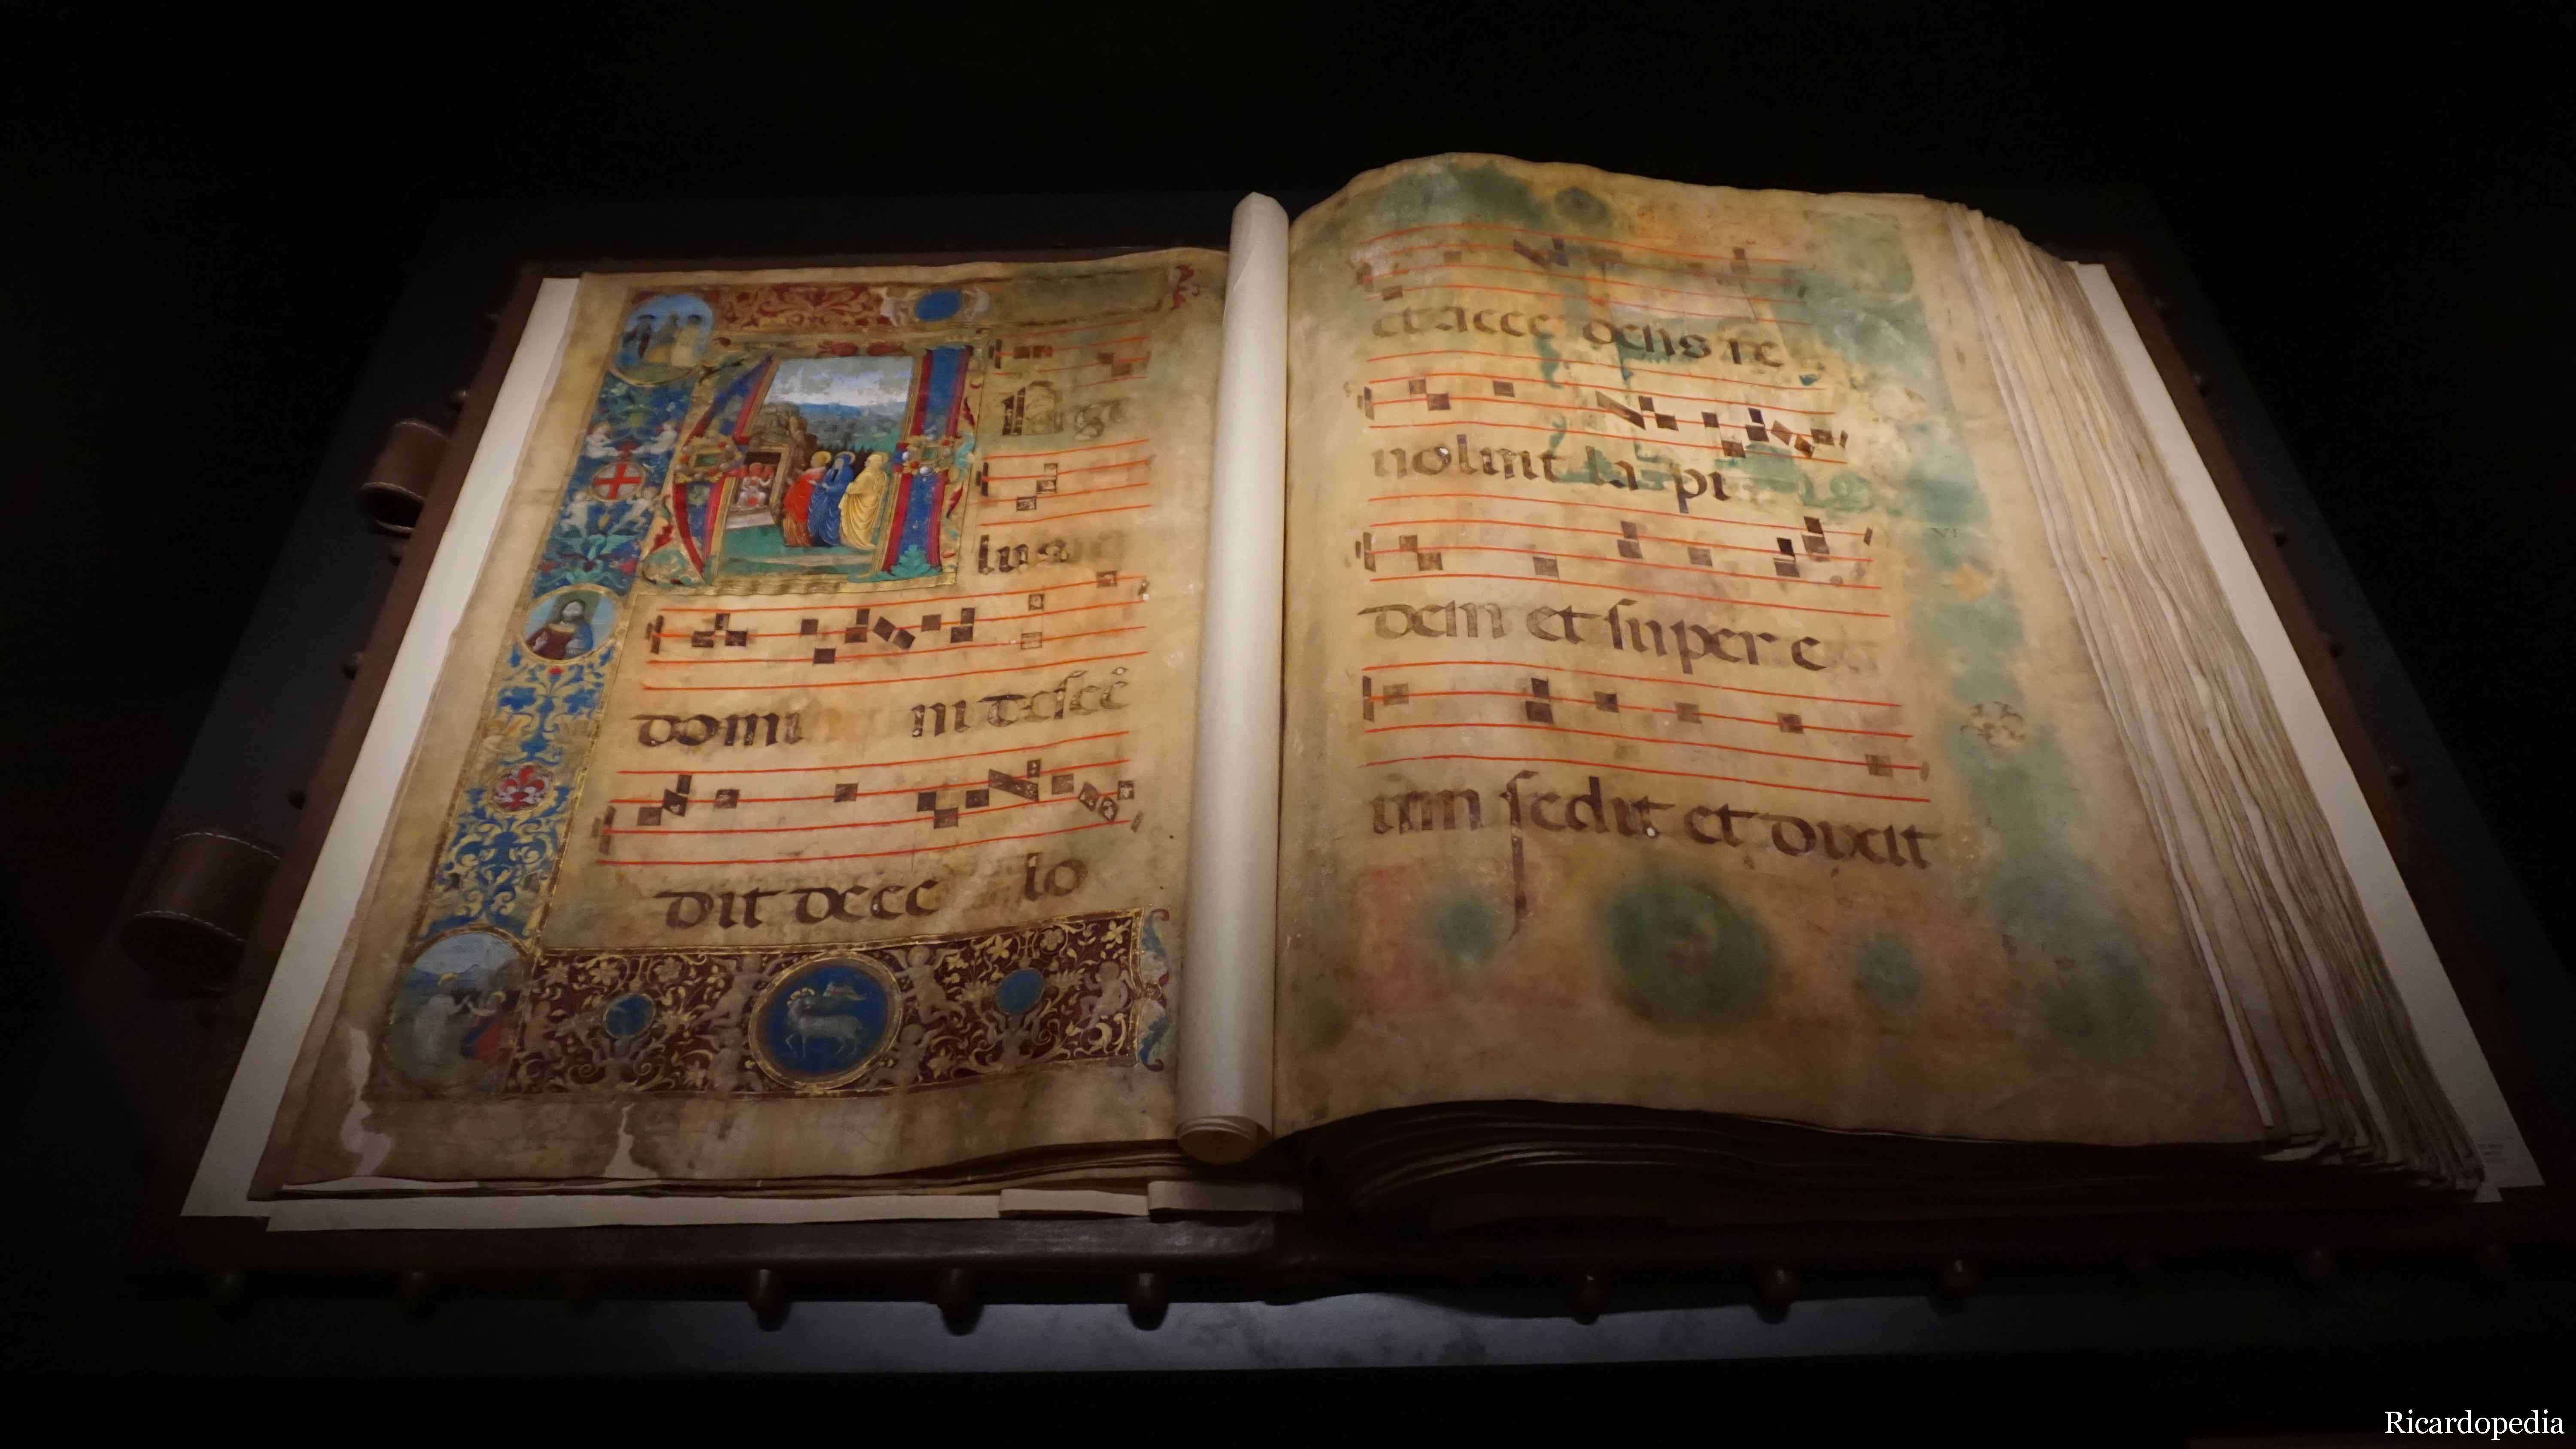 lus
domi ni desce
dit de ce lo
et acce dens re
nolvit la pi
dem et super e
um sedit et dixit
Ricardopedia